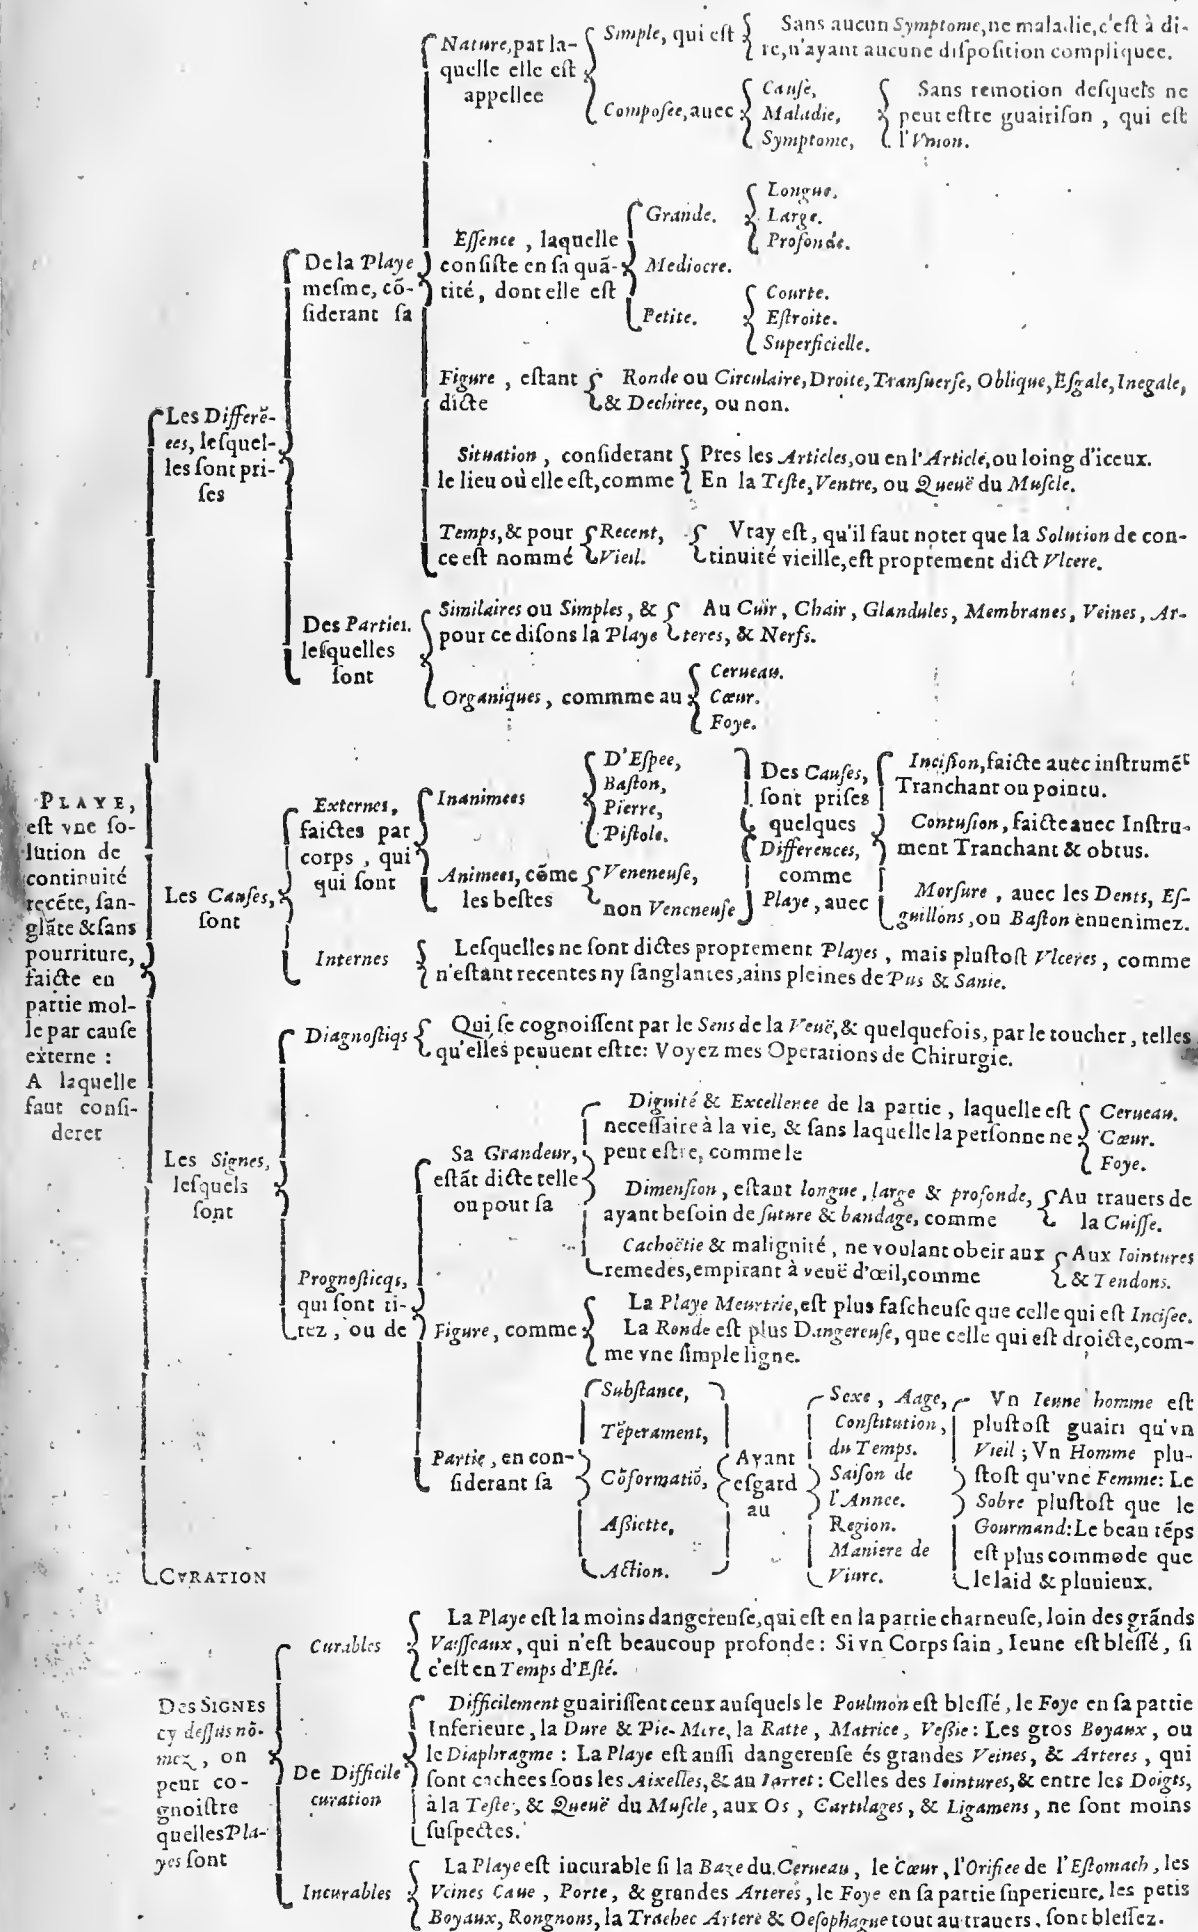 PLAYE,
eſt vne ſo-
lution de
continuité
recēte, ſan-
glāte & ſans
pourriture,
faicte en
partie mol-
le par cauſe
externe :
A laquelle
faut conſi-
derer
Les Differē-
ces, leſquel-
les ſont pri-
ſes
De la Playe
meſme, cō-
ſiderant ſa
Nature, par la-
quelle elle eſt
appellee
Simple, qui eſt
Sans aucun Symptome, ne maladie, c'eſt à di-
re, n'ayant aucune diſpoſition compliquee.
Compoſee, auec
Cauſe,
Maladie,
Symptome,
Sans remotion deſquels ne
peut eſtre guairiſon , qui eſt
l'Vnion.
Eſſence , laquelle
conſiſte en ſa quā-
tité , dont elle eſt
Grande.
Longue.
Large.
Profonde.
Mediocre.
Petite.
Courte.
Eſtroite.
Superficielle.
Figure , eſtant
dicte
Ronde ou Circulaire, Droite, Tranſuerſe, Oblique, Eſgale, Inegale,
& Dechiree, ou non.
Situation , conſiderant
le lieu où elle eſt, comme
Pres les Articles, ou en l'Article, ou loing d'iceux.
En la Teſte, Ventre, ou Queuë du Muſcle.
Temps, & pour
ce eſt nommé
Recent,
Vieil.
Vray eſt , qu'il faut noter que la Solution de con-
tinuité vieille, eſt proprement dict Vlcere.
Des Parties.
leſquelles
ſont
Similaires ou Simples , &
pour ce diſons la Playe
Au Cuir , Chair , Glandules , Membranes , Veines , Ar-
teres , & Nerfs.
Organiques , commme au
Cerueau.
Cœur.
Foye.
Les Cauſes,
ſont
Externes,
faictes par
corps , qui
qui ſont
Inanimees
D'Eſpee,
Baſton,
Pierre,
Piſtole.
Animees, cōme
les beſtes
Veneneuſe,
non Veneneuſe
Des Cauſes,
ſont priſes
quelques
Differences,
comme
Playe, auec
Inciſion, faicte auec inſtrumēt
Tranchant ou pointu.
Contuſion, faicte auec Inſtru-
ment Tranchant & obtus.
Morſure , auec les Dents, Eſ-
guillons, ou Baſton enuenimez.
Internes
Leſquelles ne ſont dictes proprement Playes , mais pluſtoſt Vlceres , comme
n'eſtant recentes ny ſanglantes, ains pleines de Pus & Sanie.
Les Signes,
leſquels
ſont
Diagnoſtiqs
Qui ſe cognoiſſent par le Sens de la Veuë, & quelquefois, par le toucher , telles
qu'elles peuuent eſtre: Voyez mes Operations de Chirurgie.
Prognoſticqs,
qui ſont ti-
rez , ou de
Sa Grandeur,
eſtāt dicte telle
ou pour ſa
Dignité & Excellence de la partie , laquelle eſt
neceſſaire à la vie, & ſans laquelle la perſonne ne
peut eſtre, comme le
Cerueau.
Cœur.
Foye.
Dimenſion , eſtant longue , large & profonde,
ayant beſoin de ſuture & bandage, comme
Au trauers de
la Cuiſſe.
Cachoëtie & malignité , ne voulant obeir aux
remedes, empirant à veuë d'œil, comme
Aux Iointures
& Tendons.
Figure, comme
La Playe Meurtrie, eſt plus faſcheuſe que celle qui eſt Inciſee.
La Ronde eſt plus Dangereuſe, que celle qui eſt droicte, com-
me vne ſimple ligne.
Partie , en con-
ſiderant ſa
Subſtance,
Tēperament,
Cōformatiō,
Aſsiette,
Action.
Ayant
eſgard
au
Sexe , Aage,
Conſtitution,
du Temps.
Saiſon de
l'Annee.
Region.
Maniere de
Viure.
Vn Ieune homme eſt
pluſtoſt guairi qu'vn
Vieil ; Vn Homme plu-
ſtoſt qu'vne Femme: Le
Sobre pluſtoſt que le
Gourmand: Le beau tēps
eſt plus commode que
le laid & pluuieux.
CVRATION
Des SIGNES
cy deſſus nō-
mez , on
peut co-
gnoiſtre
quelles Pla-
yes ſont
Curables
La Playe eſt la moins dangereuſe, qui eſt en la partie charneuſe, loin des grāds
Vaiſſeaux , qui n'eſt beaucoup profonde : Si vn Corps ſain , Ieune eſt bleſſé , ſi
c'eſt en Temps d'Eſté.
De Difficile
curation
Difficilement guairiſſent ceux auſquels le Poulmon eſt bleſſé , le Foye en ſa partie
Inferieure , la Dure & Pie-Mere, la Ratte , Matrice , Veßie : Les gros Boyaux , ou
le Diaphragme : La Playe eſt auſſi dangereuſe és grandes Veines, & Arteres , qui
ſont cachees ſous les Aixelles, & au Iarret : Celles des Iointures, & entre les Doigts,
à la Teſte , & Queuë du Muſcle , aux Os , Cartilages , & Ligamens , ne ſont moins
ſuſpectes.
Incurables
La Playe eſt incurable ſi la Baze du Cerueau , le Cœur , l'Orifice de l'Eſtomach , les
Veines Caue , Porte , & grandes Arteres , le Foye en ſa partie ſuperieure, les petis
Boyaux, Rongnons, la Trachee Artere & Oeſophague tout au trauers, ſont bleſſez.